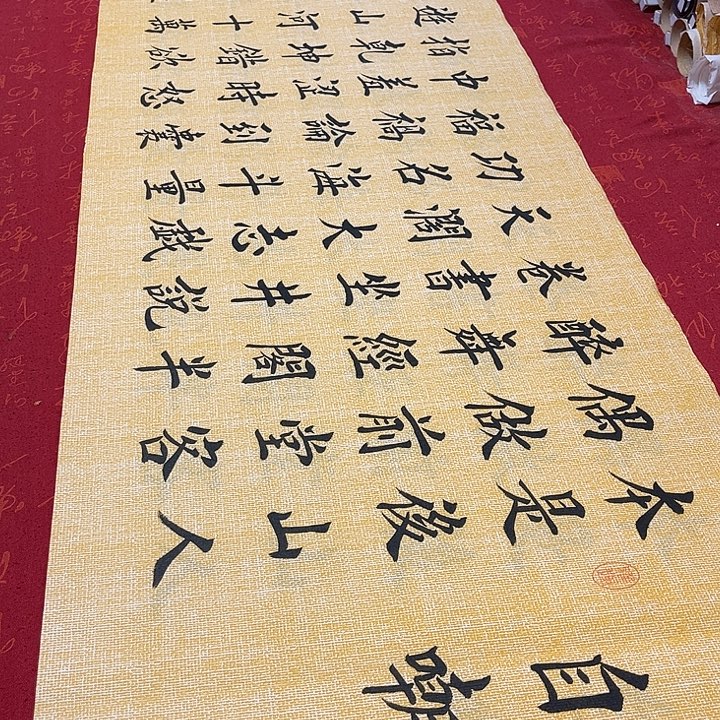 自嘲
本是後山人
偶做前堂客
醉舞經閣半
卷書坐井說
天闊大志戲
功名海斗量
福禍論到囊
中羞澀時怒
指乾坤錯欲
遊山河十萬